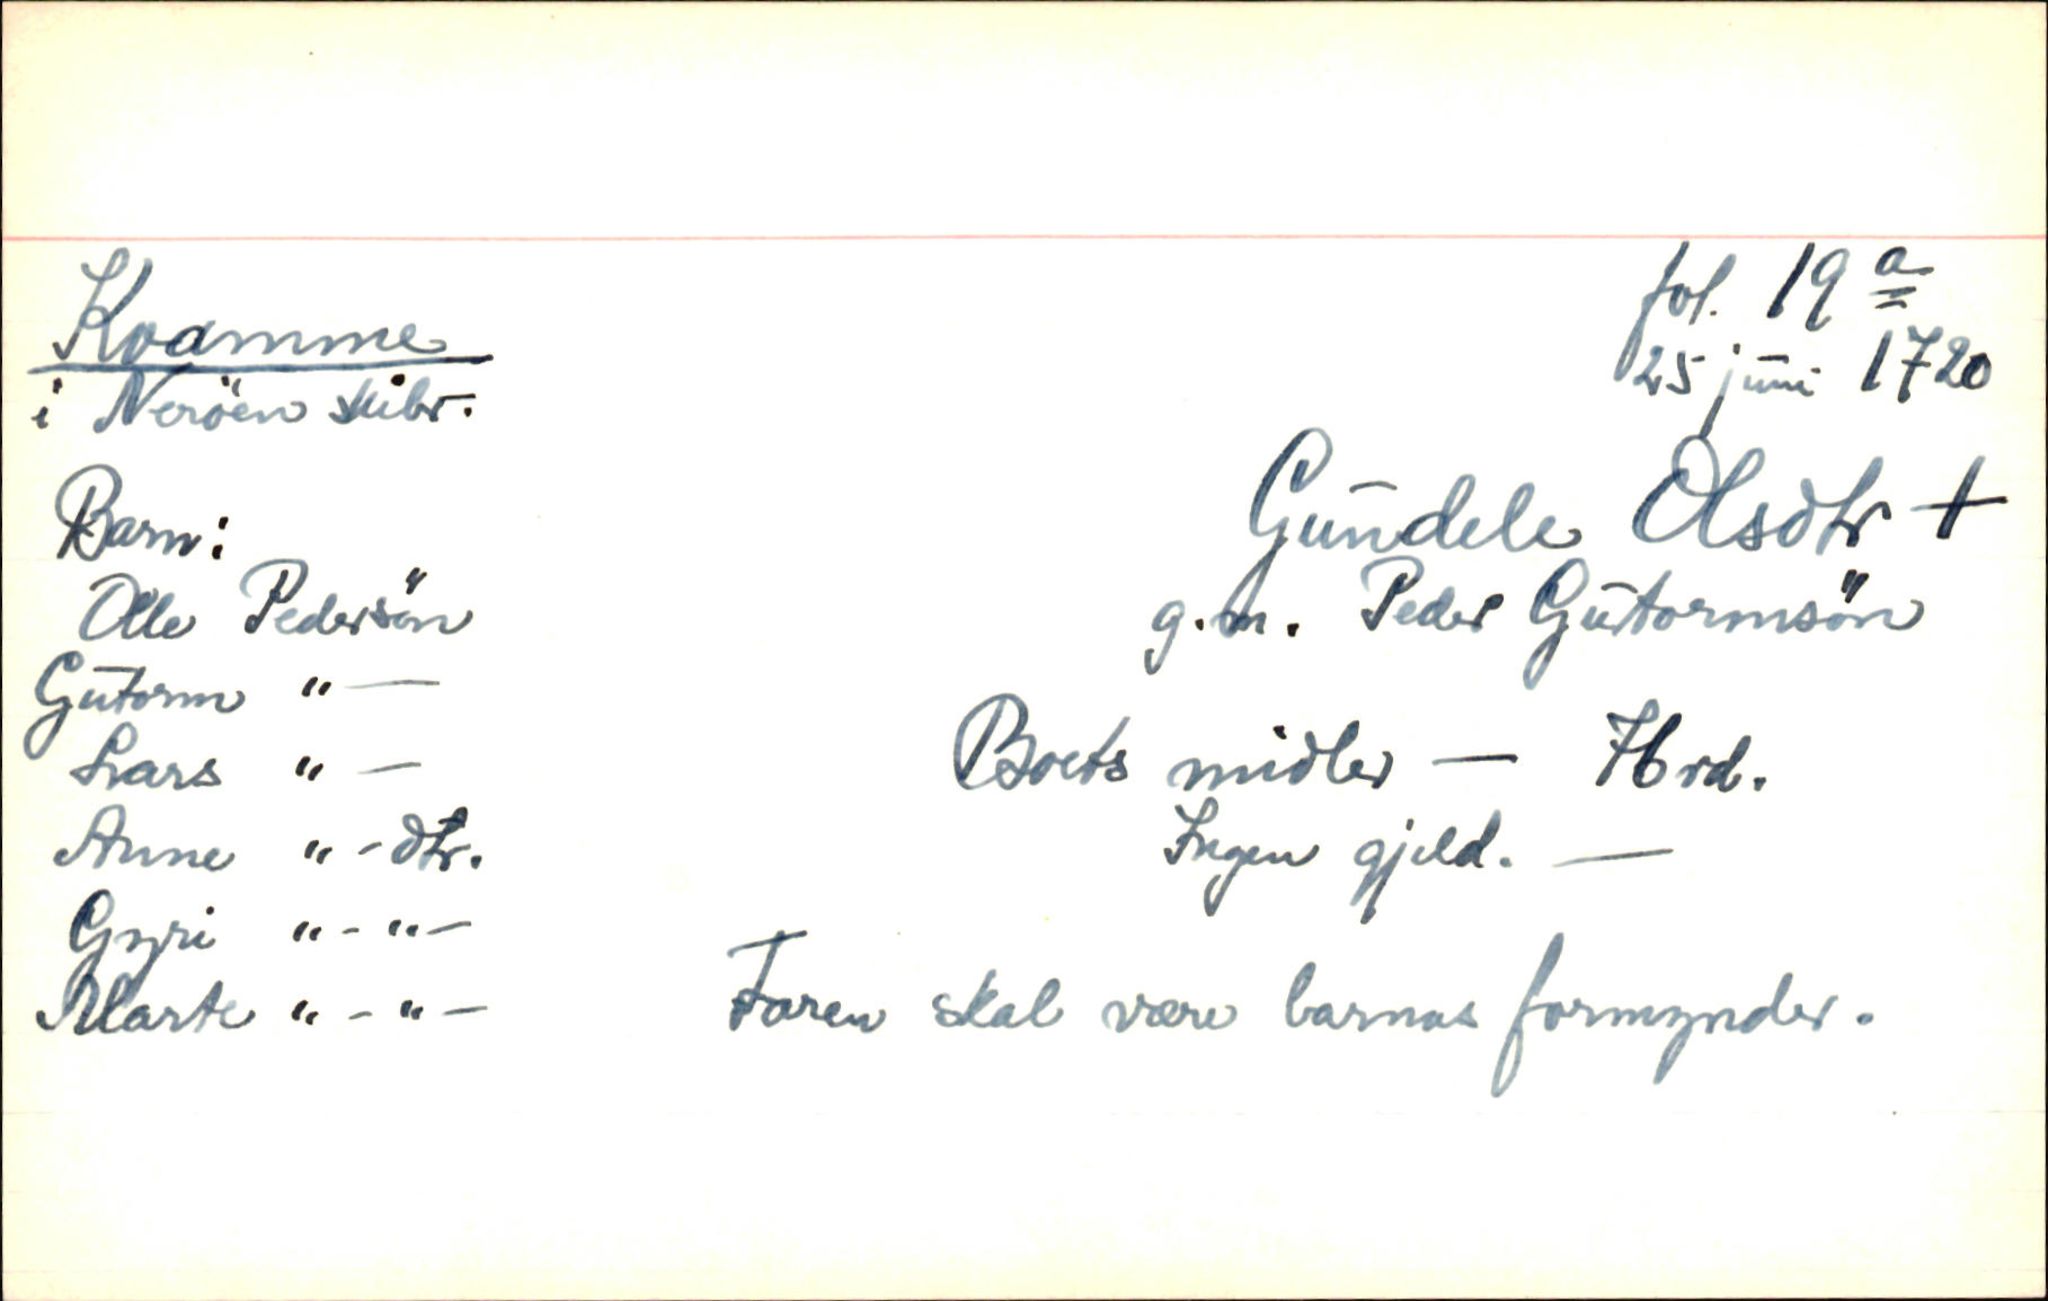 Kvamme
i Neröen skibr.
fol. 19 a
25 juni 1720
Gundele Olsdtr +
g.m. Peder Gutormsön
Barn:
Olle Pedersön
Gutorm " —
Lars " —
Anne " - dtr.
Gyri " - " -
Marte " - " -
Boets midler — 76 rd.
Ingen gjeld. —
Faren skal være barnas formynder.